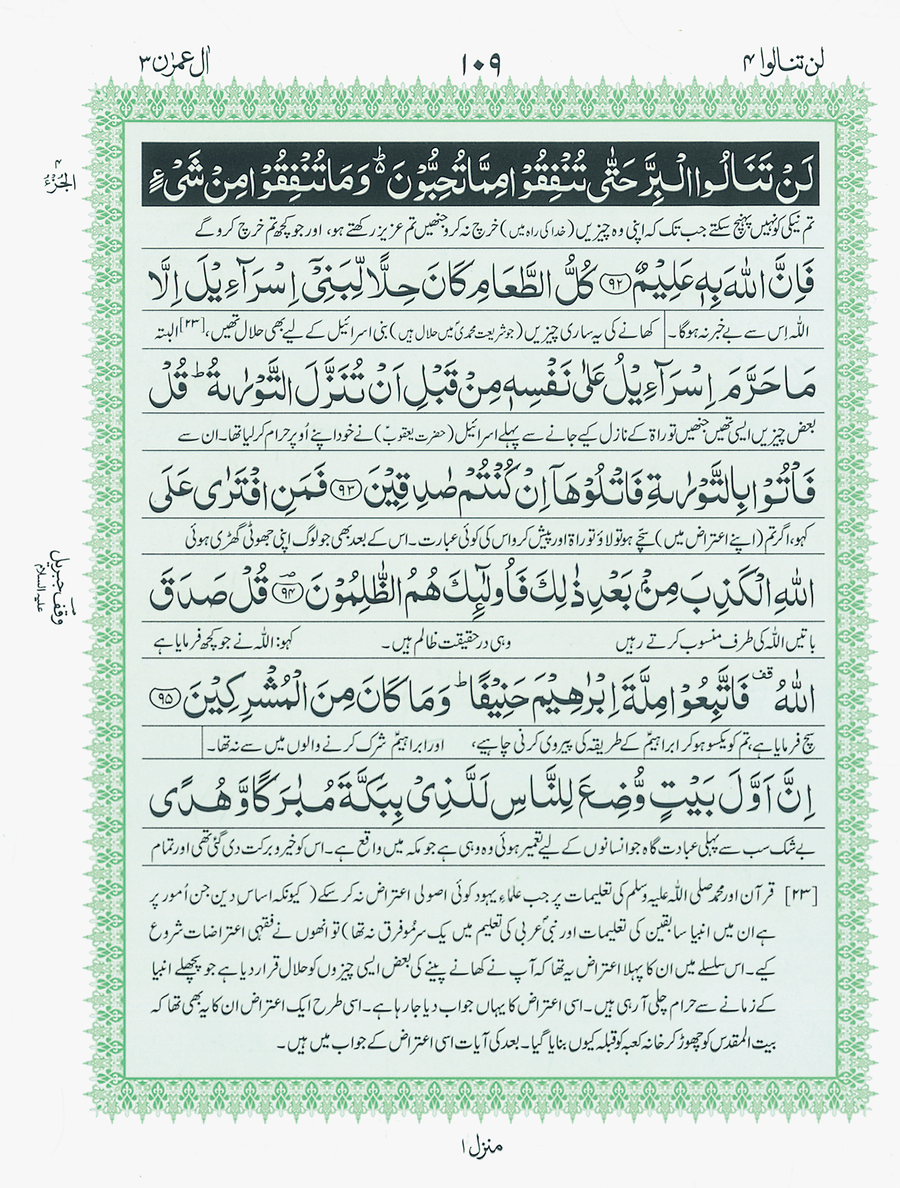 لن تنالوا ۴
۱۰۹
اٰل عمرٰن ۳
الجزء ۴
لَنْ تَنَالُوا الْبِرَّ حَتّٰى تُنْفِقُوْا مِمَّا تُحِبُّوْنَ ؕ وَمَا تُنْفِقُوْا مِنْ شَىْءٍ
تم نیکی کو نہیں پہنچ سکتے جب تک کہ اپنی وہ چیزیں (خدا کی راہ میں) خرچ نہ کرو جنھیں تم عزیز رکھتے ہو، اور جو کچھ تم خرچ کرو گے
فَاِنَّ اللّٰهَ بِهٖ عَلِيْمٌ ﴿۹۲﴾ كُلُّ الطَّعَامِ كَانَ حِلًّا لِّبَنِىْٓ اِسْرَآءِيْلَ اِلَّا
اللہ اِس سے بے خبر نہ ہوگا۔ کھانے کی یہ ساری چیزیں (جو شریعت محمدیؐ میں حلال ہیں) بنی اسرائیل کے لیے بھی حلال تھیں،[۲۳] البتہ
مَا حَرَّمَ اِسْرَآءِيْلُ عَلٰى نَفْسِهٖ مِنْ قَبْلِ اَنْ تُنَزَّلَ التَّوْرٰىةُ ؕ قُلْ
بعض چیزیں ایسی تھیں جنھیں توراۃ کے نازل کیے جانے سے پہلے اسرائیل (حضرت یعقوبؑ) نے خود اپنے اُوپر حرام کر لیا تھا۔ ان سے
فَاْتُوْا بِالتَّوْرٰىةِ فَاتْلُوْهَاۤ اِنْ كُنْتُمْ صٰدِقِيْنَ ﴿۹۳﴾ فَمَنِ افْتَرٰى عَلَى
کہو، اگر تم (اپنے اعتراض میں) سچّے ہو تو لاؤ توراۃ اور پیش کرو اس کی کوئی عبارت۔ اس کے بعد بھی جو لوگ اپنی جھوٹی گھڑی ہوئی
اللّٰهِ الْكَذِبَ مِنْۢ بَعْدِ ذٰلِكَ فَاُولٰٓئِكَ هُمُ الظّٰلِمُوْنَ ﴿۹۴﴾ؔ قُلْ صَدَقَ
وقف جبریل علیہ السلام
باتیں اللہ کی طرف منسوب کرتے رہیں وہی درحقیقت ظالم ہیں۔ کہو: اللہ نے جو کچھ فرمایا ہے
اللّٰهُ قف فَاتَّبِعُوْا مِلَّةَ اِبْرٰهِيْمَ حَنِيْفًا ؕ وَمَا كَانَ مِنَ الْمُشْرِكِيْنَ ﴿۹۵﴾
سچ فرمایا ہے، تم کو یکسو ہو کر ابراہیمؑ کے طریقہ کی پیروی کرنی چاہیے، اور ابراہیمؑ شرک کرنے والوں میں سے نہ تھا۔
اِنَّ اَوَّلَ بَيْتٍ وُّضِعَ لِلنَّاسِ لَلَّذِىْ بِبَكَّةَ مُبٰرَكًا وَّهُدًى
بے شک سب سے پہلی عبادت گاہ جو انسانوں کے لیے تعمیر ہوئی وہ وہی ہے جو مکہ میں واقع ہے۔ اس کو خیر و برکت دی گئی تھی اور تمام
[۲۳] قرآن اور محمد صلی اللہ علیہ وسلم کی تعلیمات پر جب علماءِ یہود کوئی اصولی اعتراض نہ کر سکے (کیونکہ اساسِ دین جن اُمور پر
ہے ان میں انبیا سابقین کی تعلیمات اور نبی عربی کی تعلیم میں یک سرِمُو فرق نہ تھا) تو انھوں نے فقہی اعتراضات شروع
کیے۔ اس سلسلے میں ان کا پہلا اعتراض یہ تھا کہ آپ نے کھانے پینے کی بعض ایسی چیزوں کو حلال قرار دیا ہے جو پچھلے انبیا
کے زمانے سے حرام چلی آ رہی ہیں۔ اسی اعتراض کا یہاں جواب دیا جا رہا ہے۔ اسی طرح ایک اعتراض ان کا یہ بھی تھا کہ
بیت المقدس کو چھوڑ کر خانہ کعبہ کو قبلہ کیوں بنایا گیا۔ بعد کی آیات اسی اعتراض کے جواب میں ہیں۔
منزل ۱